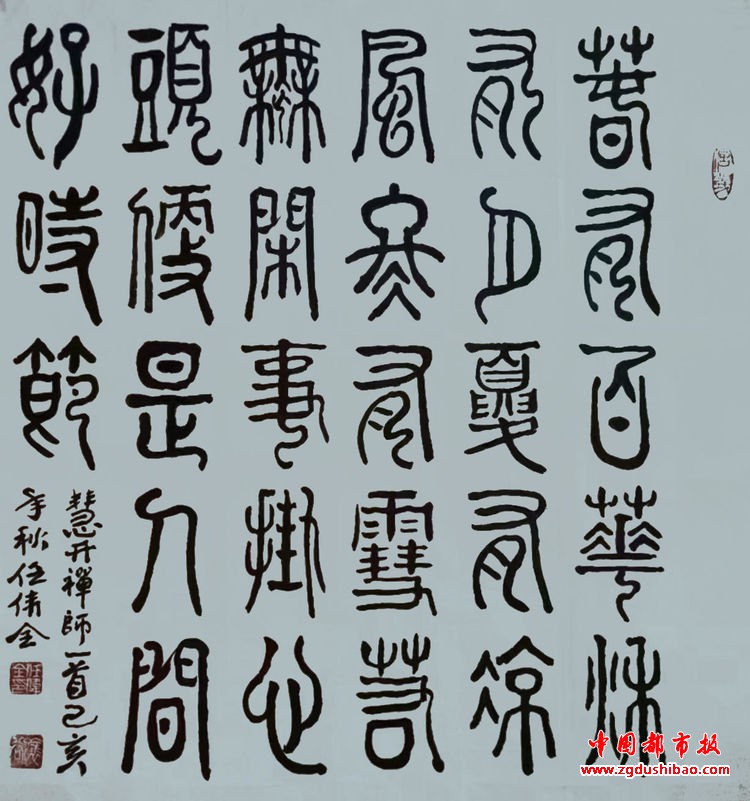 春有百華秋
有月夏有涼
風冬有雪若
無閑事掛心
頭便是人間
好時節
慧开禪師一首己亥
年秋任伟全
中国都市报
www.zgdushibao.com